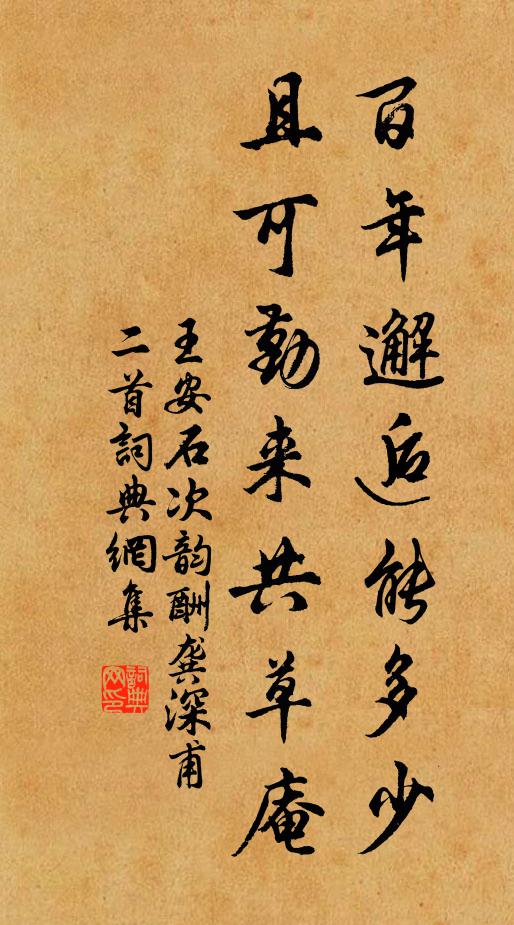 百年邂逅能多少
且可勤来共草庵
王安石次韵酬龚深甫
二首詞典網集
詞典
网印